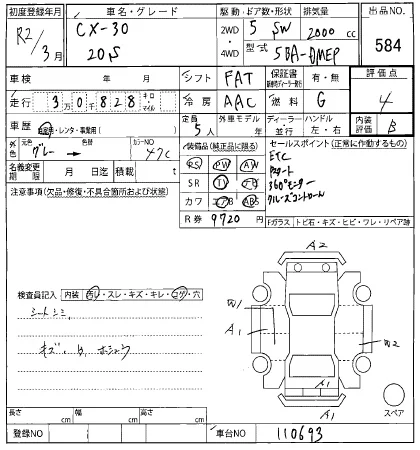 初度登録年月 車名・グレード 駆動・ドア数・形状 排気量 出品NO.
R2/3月 CX-30 20S 2WD・4WD 5 SW 2000 cc 584
型式 5BA-DMEP
車検 年 月 シフト FAT 保証書 有・無 評価点
走行 3万0千828 キロ・マイル 冷房 AAC 燃料 G 4
車歴 自家用・レンタ・事業用( ) 定員 5人 外車モデル 年 ディーラー・並行 ハンドル 左・右 内装 B
外色 元色 グレー → 色替 カラーNO 47C
装備品(純正品に限る) セールスポイント(正常に作動するもの)
名義変更期限 月 日迄 積載 t
PS PW AW
SR TV ナビ
カワ エアB ABS
R券 9720 円
ETC
Pスタート
360°モニター
クルーズコントロール
注意事項(欠品・修復・不具合箇所および状態)
Fガラス トビ石・キズ・ヒビ・ワレ・リペア跡
検査員記入 内装 汚れ・スレ・キズ・キレ・コゲ・穴
シートシミ、
キズ、
A2
W1
A1
W2
A1
A1
スペア
長さ cm 幅 cm 高さ cm
登録NO 車台NO 110693